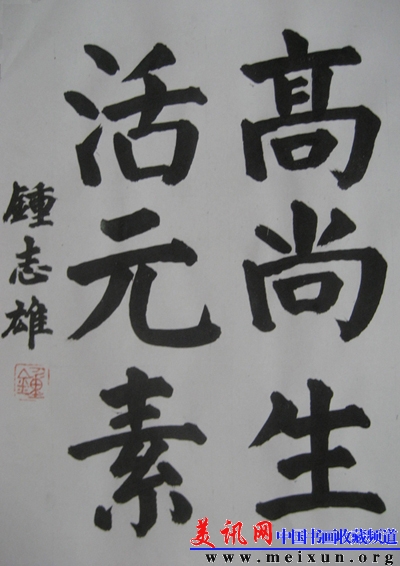 髙尚生
活元素
鍾志雄
鍾
美讯网中国书画收藏频道
www.meixun.org